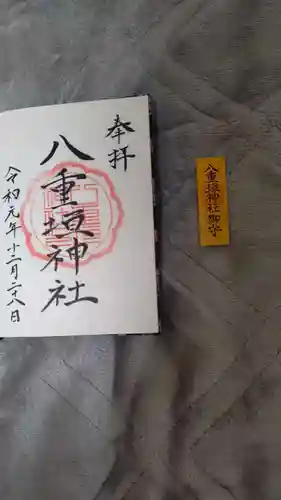 奉拝
八重垣神社
令和元年十二月二十八日
八重垣神社御守